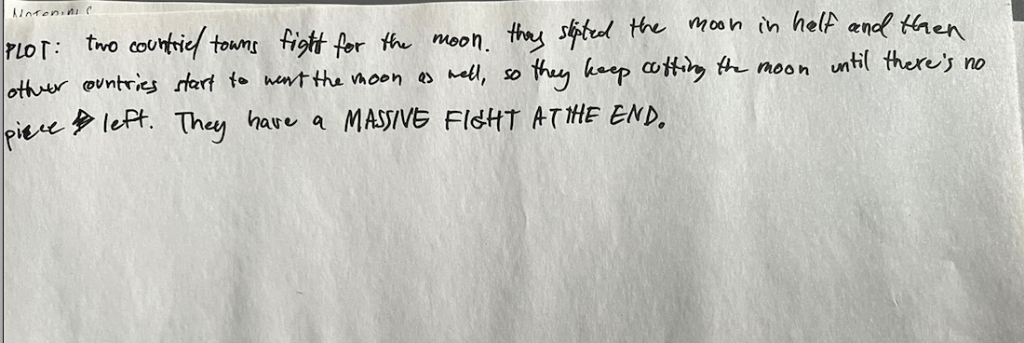 PLOT: two countries/ towns fight for the moon. they slpited the moon in half and then
other countries start to want the moon as well, so they keep cutting the moon until there's no
piece left. They have a MASSIVE FIGHT AT THE END.